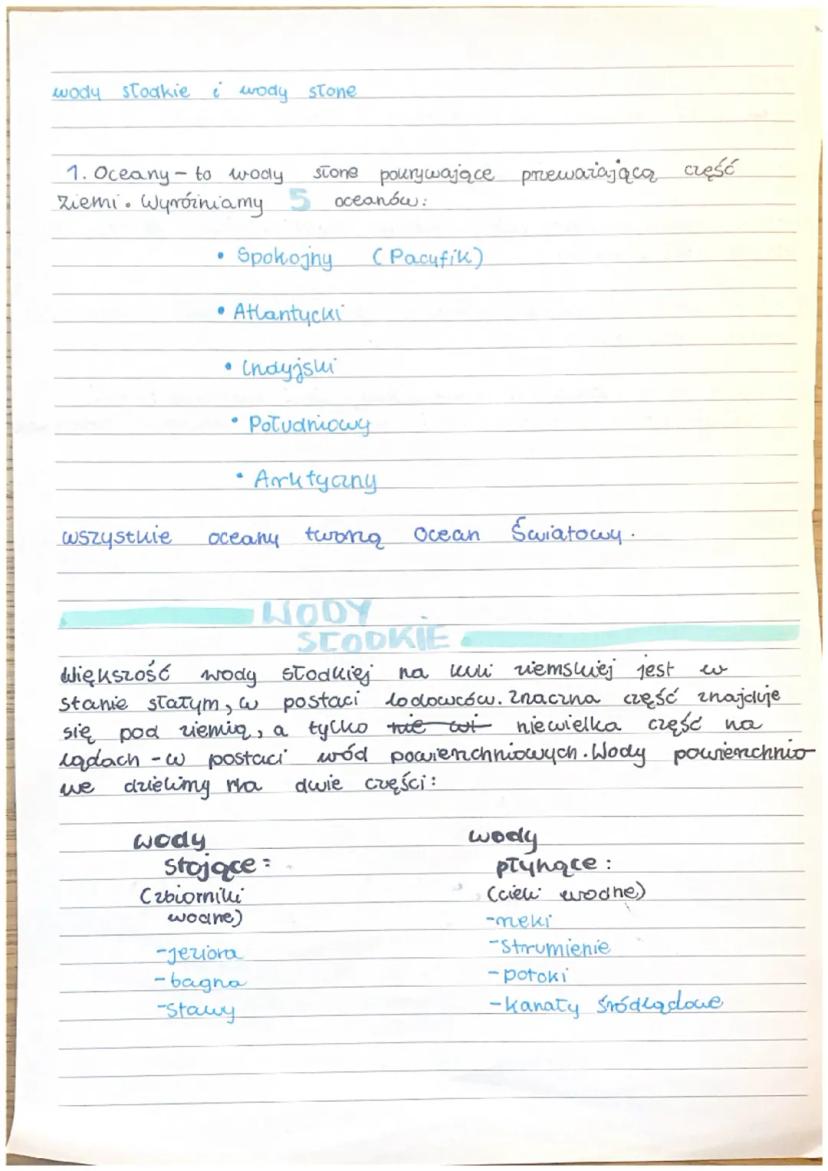 wody słodkie i wody słone
1. Oceany - to wody słone pokrywające przeważającą część
ziemi. Wyróżniamy 5 oceanów:
• Spokojny (Pacyfik)
• Atlantycki
• Indyjski
• Południowy
• Arktyczny
wszystkie oceany tworzą Ocean Światowy.
WODY
SŁODKIE
Większość wody słodkiej na kuli ziemskiej jest w
stanie stałym, w postaci lodowców. Znaczna część znajduje
się pod ziemią, a tylko nie wi niewielka część na
lądach - w postaci wód powierzchniowych. Wody powierzchnio
we dzielimy na dwie części:
wody
stojące:
(zbiorniki
wodne)
-jeziora
-bagna
-stawy
wody
płynące:
(cieki wodne)
-rzeki
-strumienie
-potoki
-kanały śródlądowe